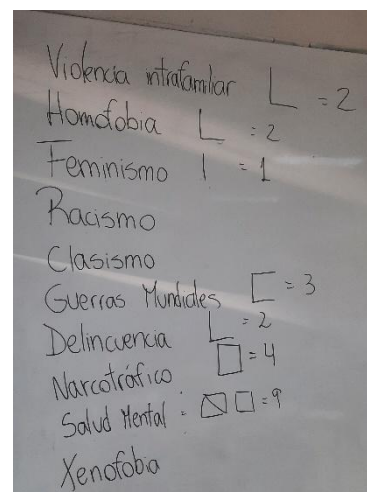 Violencia intrafamiliar = 2
Homofobia = 2
Feminismo = 1
Racismo
Clasismo
Guerras Mundiales = 3
Delincuencia = 2
Narcotráfico = 4
Salud Mental : = 9
Xenofobia